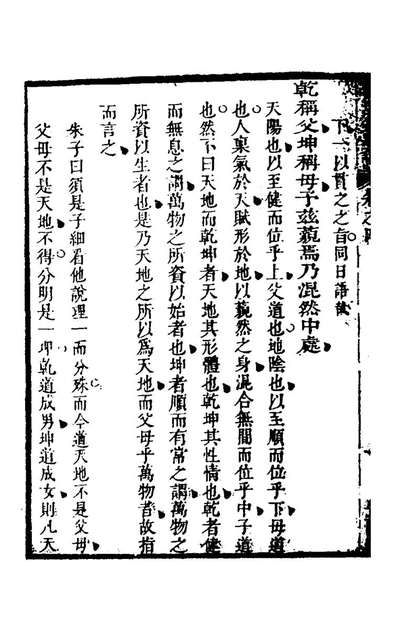 下一以貫之之旨同日語哉
乾稱父坤稱母子茲藐焉乃混然中處
天陽也以至健而位乎上父道也地陰也以至順而位乎下母道
也人稟氣於天賦形於地以藐然之身混合無間而位乎中子道
也然不曰天地而乾坤者天地其形體也乾坤其性情也乾者健
而無息之謂萬物之所資以始者也坤者順而有常之謂萬物之
所資以生者也是乃天地之所以爲天地而父母乎萬物者故指
而言之
朱子曰須是子細看他說理一而分殊而今道天地不是父母
父母不是天地不得分明是一理乾道成男坤道成女則凡天